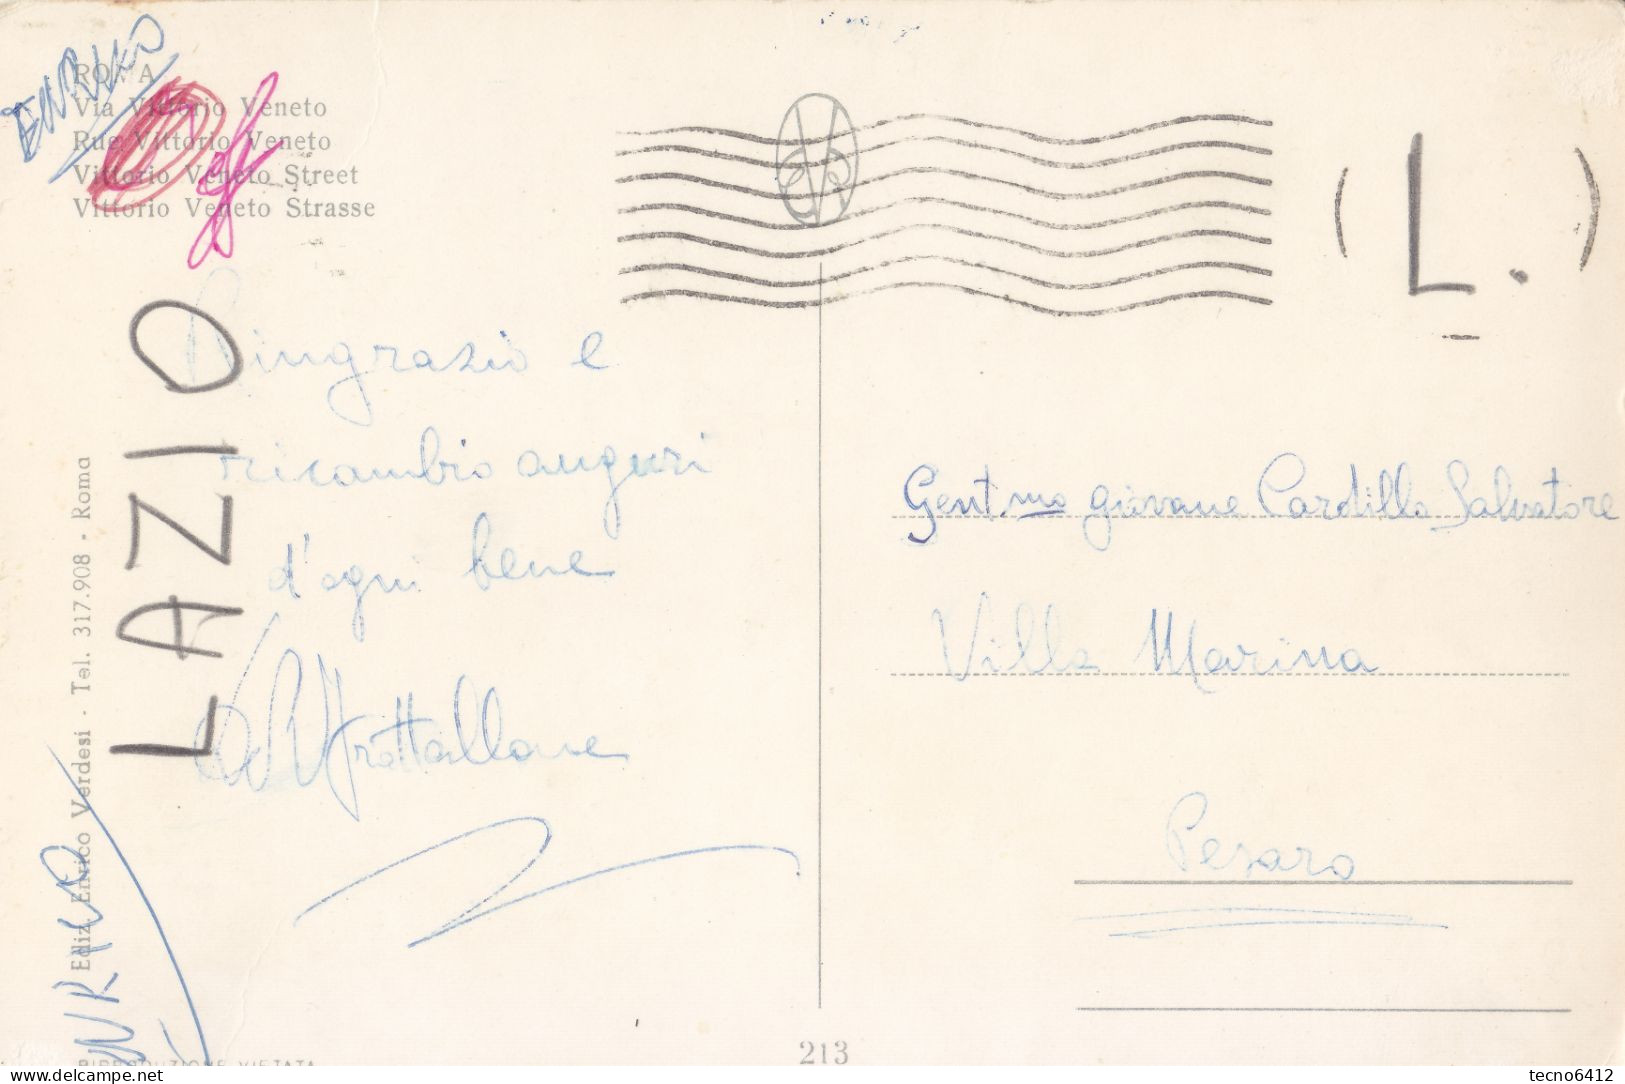 ROMA
Via Vittorio Veneto
Rue Vittorio Veneto
Vittorio Veneto Street
Vittorio Veneto Strasse
ENRICO
Ringrazio e
ricambio auguri
d'ogni bene
Frattallone
LAZIO
Ediz. Enrico Verdesi - Tel. 317.908 - Roma
RIPRODUZIONE VIETATA
(L.)
Gent.mo giovane Cardillo Salvatore
Villa Marina
Pesaro
213
tecno6412